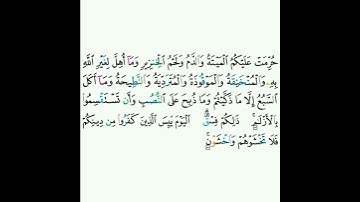 حُرِّمَتْ عَلَيْكُمُ الْمَيْتَةُ وَالدَّمُ وَلَحْمُ الْخِنزِيرِ وَمَا أُهِلَّ لِغَيْرِ اللَّهِ
بِهِ وَالْمُنْخَنِقَةُ وَالْمَوْقُوذَةُ وَالْمُتَرَدِّيَةُ وَالنَّطِيحَةُ وَمَا أَكَلَ
السَّبُعُ إِلَّا مَا ذَكَّيْتُمْ وَمَا ذُبِحَ عَلَى النُّصُبِ وَأَن تَسْتَقْسِمُوا
بِالْأَزْلَامِ ۚ ذَٰلِكُمْ فِسْقٌ ۗ الْيَوْمَ يَئِسَ الَّذِينَ كَفَرُوا مِن دِينِكُمْ
فَلَا تَخْشَوْهُمْ وَاخْشَوْنِ ۚ